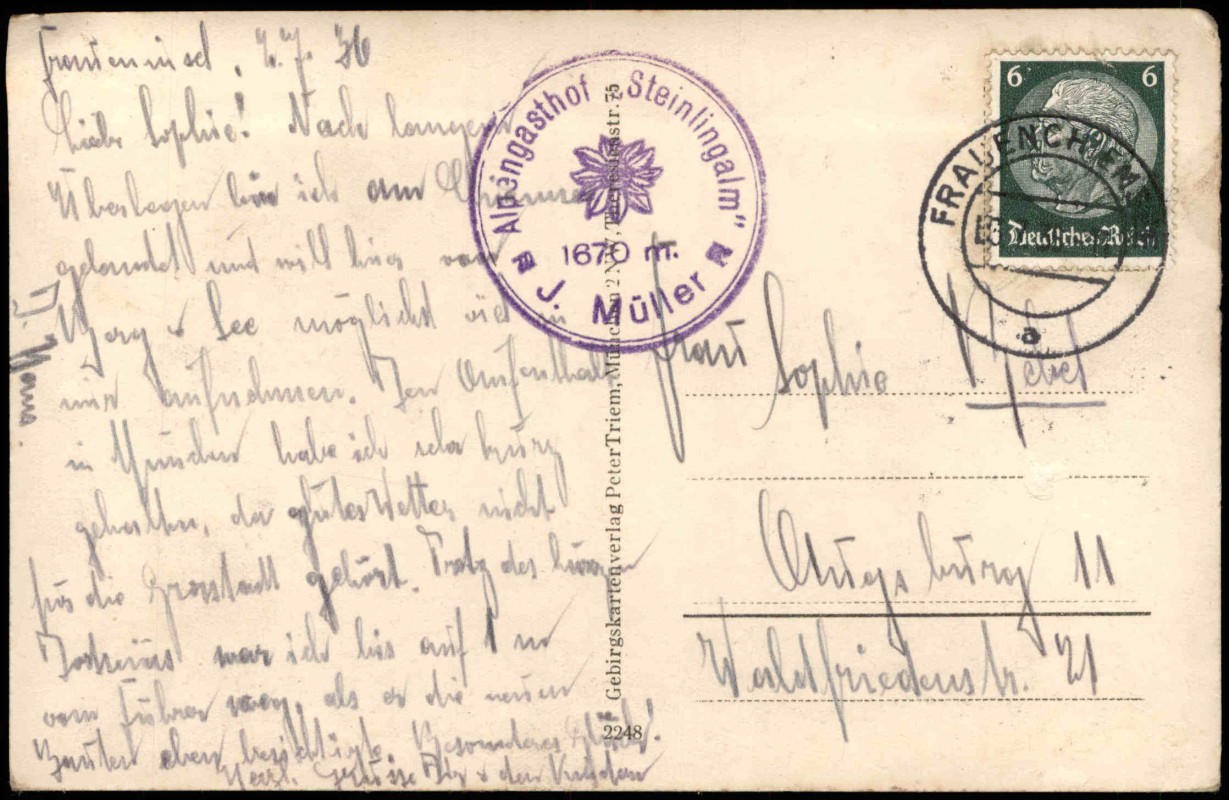 Fraueninsel, 2.7.36
Liebe Sophie! Nach langem
Überlegen bin ich am Chiemsee
gelandet und will hier von
Berg u See möglichst viel in
mir aufnehmen. Den Aufenthalt
in München habe ich sehr kurz
gehalten, da gutes Wetter nicht
für die Grosstadt gehört. Trotz des kurzen
war ich bis auf 1 m
vom Führer weg, als er die neuen
Bauten eben besichtigte. Besonderes Glück!
Herzl. Grüsse Dir u den Kindern
"Alpengasthof „Steinlingalm“
1670 m.
J. Müller
Gebirgskartenverlag Peter Triem, München 2 NW, Theresienstr. 75
2248
6 6
Deutsches Reich
FRAUENCHIEMSEE
a
Frau
Sophie
Augsburg 11
Waldfriedenstr. 21